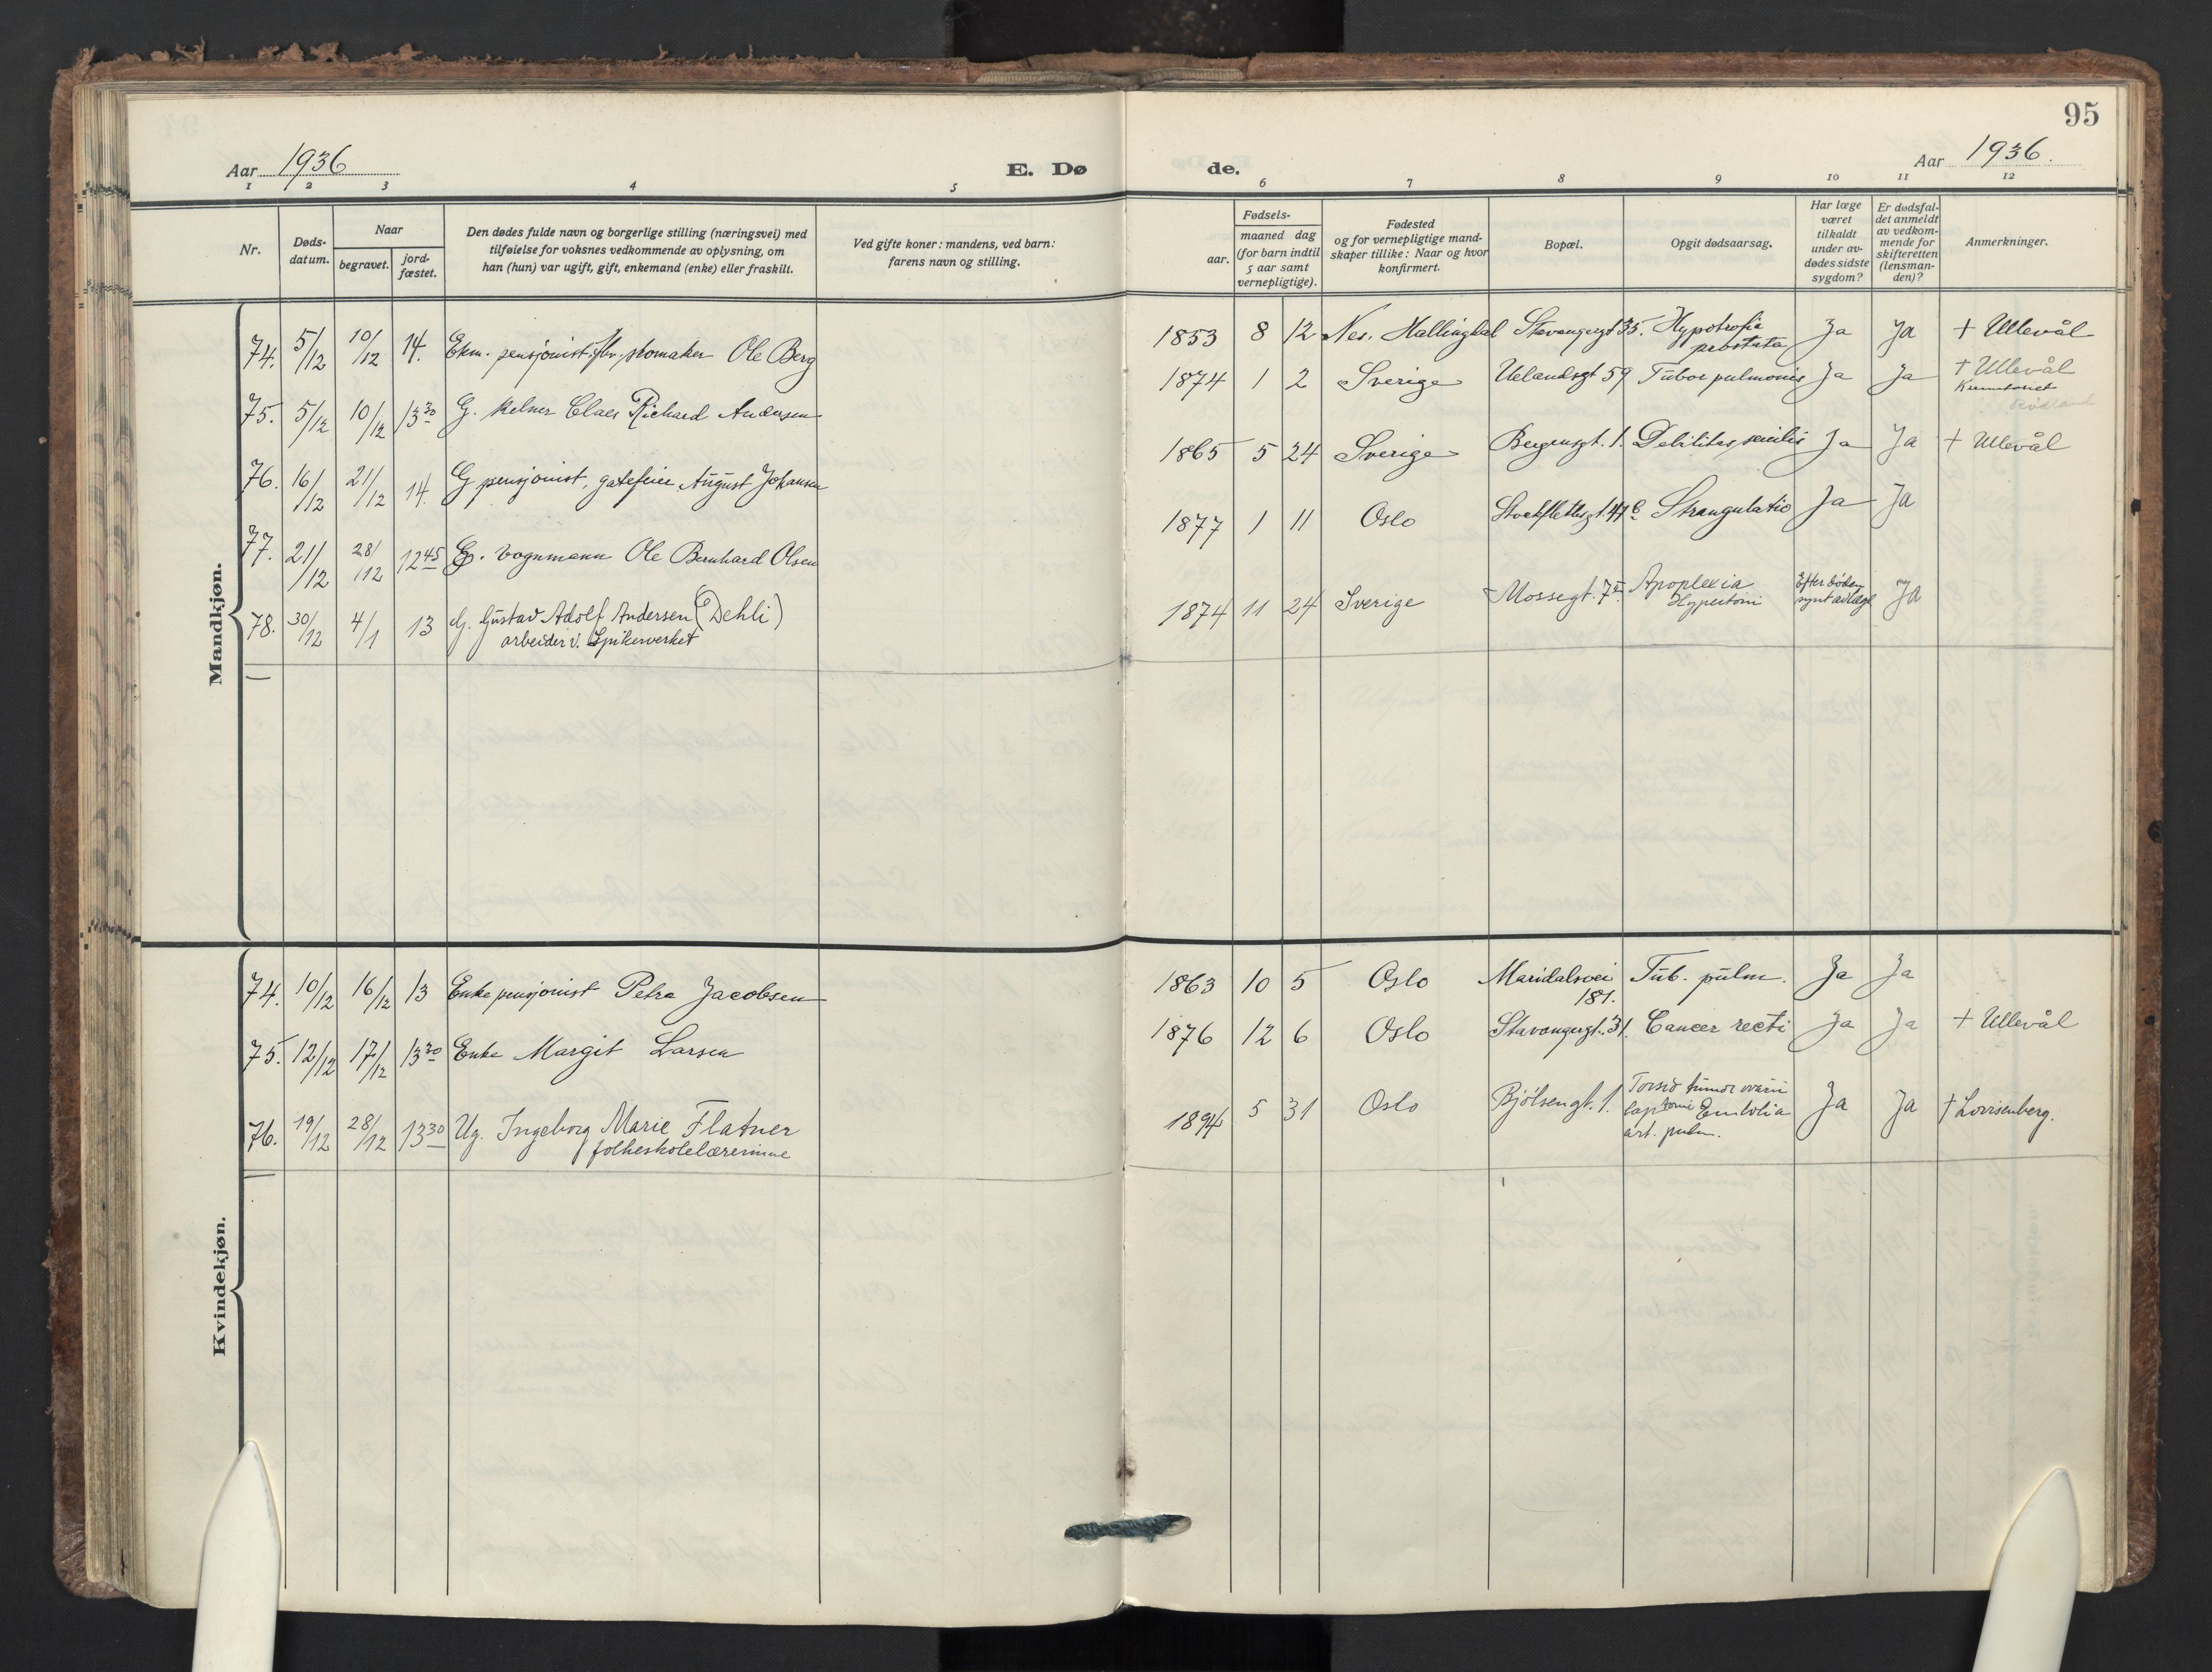 95
Aar 1936
E. Dø
de.
Aar 1936.
1 2 3 4 5
6 7 8 9 10 11 12
Nr.
Døds-
datum.
Naar
begravet.
jord-
fæstet.
Den dødes fulde navn og borgerlige stilling (næringsvei) med
tilføielse for voksnes vedkommende av oplysning, om
han (hun) var ugift, gift, enkemand (enke) eller fraskilt.
Ved gifte koner: mandens, ved barn:
farens navn og stilling.
Fødsels-
aar.
maaned dag
(for barn indtil
5 aar samt
vernepligtige).
Fødested
og for vernepligtige mand-
skaper tillike: Naar og hvor
konfirmert.
Bopæl.
Opgit dødsaarsag.
Har læge
været
tilkaldt
under av-
dødes sidste
sygdom?
Er dødsfal-
det anmeldt
av vedkom-
mende for
skifteretten
(lensman-
den)?
Anmerkninger.
Mandkjøn.
74. 5/12 10/12 14. Ekm. pensjonist, skomaker Ole Berg
1853 8 12 Nes. Hallingdal Stavangergt 35. Hypotrofia
prostata Ja Ja + Ullevål
75. 5/12 10/12 13 30 G. Kelner Claes Richard Andersen
1874 1 2 Sverige Uelandsgt 59 Tuber pulmonis Ja Ja + Ullevål
Krematoriet
76. 16/12 21/12 14. G pensjonist, gatefeier August Johansen
1865 5 24 Sverige Bergensgt. 1. Debilitas senilis Ja Ja + Ullevål
77. 21/12 28/12 12 45 E. Vognmann Ole Bernhard Olsen
1877 1 11 Oslo Stockflethsgt. 41 Strangulatio Ja Ja
78. 30/12 4/1 13 G. Gustav Adolf Andersen (Dehli)
arbeider v. Spikerverket
1874 11 24 Sverige Mossegt. 7 Apoplexia
Hypertoni Efter døden
synt av læge Ja
Kvindekjøn.
74. 10/12 16/12 13 Enke pensjonist Petra Jacobsen
1863 10 5 Oslo Maridalsvei
181. Tub. pulm. Ja Ja
75. 12/12 17/12 13 30 Enke Margit Larsen
1876 12 6 Oslo Stavangergt. 31. Cancer recti Ja Ja + Ullevål
76. 19/12 28/12 13 30 Ug. Ingeborg Marie Flatner
folkeskolelærerinne
1894 5 31 Oslo Bjølsengt. 1. Torsio tumor ovarii
Laptomi Embolia
art. pulm. Ja Ja + Lovisenberg.